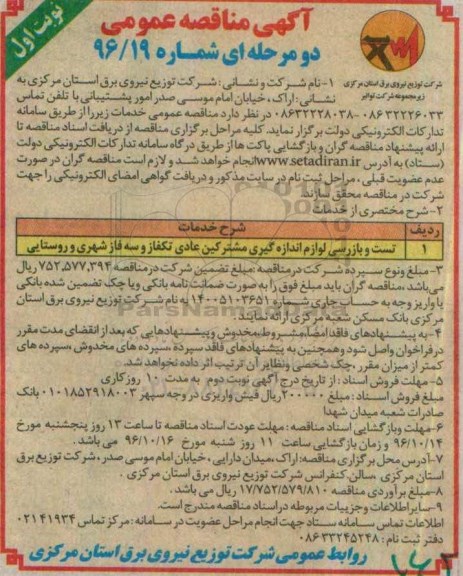 نوبت اول
آگهی مناقصه عمومی
دو مرحله ای شماره ۹۶/۱۹
شرکت توزیع نیروی برق استان مرکزی
زیرمجموعه شرکت توانیر
۱- نام شرکت و نشانی : شرکت توزیع نیروی برق استان مرکزی به
نشانی : اراک ، خیابان امام موسی صدر امور پشتیبانی با تلفن تماس
۰۸۶۳۲۲۲۶۰۳۳ -۰۸۶۳۲۲۲۸۰۳۸ در نظر دارد مناقصه عمومی خدمات زیر را از طریق سامانه
تدارکات الکترونیکی دولت برگزار نماید. کلیه مراحل برگزاری مناقصه از دریافت اسناد مناقصه تا
ارائه پیشنهاد مناقصه گران و بازگشایی پاکت ها از طریق درگاه سامانه تدارکات الکترونیکی دولت
(ستاد) به آدرس www.setadiran.ir انجام خواهد شد و لازم است مناقصه گران در صورت
عدم عضویت قبلی ، مراحل ثبت نام در سایت مذکور و دریافت گواهی امضای الکترونیکی را جهت
شرکت در مناقصه محقق سازند
۲- شرح مختصری از خدمات
ردیف شرح خدمات
۱ تست و بازرسی لوازم اندازه گیری مشترکین عادی تکفاز و سه فاز شهری و روستایی
۳- مبلغ و نوع سپرده شرکت در مناقصه : مبلغ تضمین شرکت در مناقصه ۷۵۲,۵۷۷,۳۹۴ ریال
می باشد ، مناقصه گران باید مبلغ فوق را به صورت ضمانت نامه بانکی و یا چک تضمین شده بانکی
یا واریز وجه به حساب جاری شماره ۱۴۰۰۵۱۰۳۶۵۱ به نام شرکت توزیع نیروی برق استان
مرکزی بانک مسکن شعبه مرکزی ارائه نمایند.
۴- به پیشنهادهای فاقد امضا، مشروط، مخدوش و پیشنهادهایی که بعد از انقضای مدت مقرر
در فراخوان واصل شود و همچنین به پیشنهادهای فاقد سپرده ،سپرده های مخدوش ،سپرده های
کمتر از میزان مقرر ،چک شخصی و نظایر آن ترتیب اثر داده نخواهد شد.
۵- مهلت فروش اسناد : از تاریخ درج آگهی نوبت دوم به مدت ۱۰ روز کاری
مبلغ فروش اسناد: مبلغ ۲۰۰۰۰۰ ریال فیش واریزی در وجه سپهر ۰۱۰۱۸۵۲۹۱۸۰۰۳ بانک
صادرات شعبه میدان شهدا
۶- مهلت و بازگشایی اسناد مناقصه : مهلت عودت اسناد مناقصه تا ساعت ۱۳ روز پنجشنبه مورخ
۹۶/۱۰/۱۴ و زمان بازگشایی ساعت ۱۱ روز شنبه مورخ ۹۶/۱۰/۱۶ می باشد .
۷- آدرس محل برگزاری مناقصه: اراک ،میدان دارایی ، خیابان امام موسی صدر ، شرکت توزیع برق
استان مرکزی ،سالن کنفرانس شرکت توزیع نیروی برق استان مرکزی .
۸- مبلغ برآوردی مناقصه ۱۷/۷۵۲/۵۷۹/۸۱۰ ریال می باشد .
۹- سایر اطلاعات و جزییات مربوطه در اسناد مناقصه مندرج است.
اطلاعات تماس سامانه ستاد جهت انجام مراحل عضویت در سامانه : مرکز تماس ۰۲۱۴۱۹۳۴
دفتر ثبت نام : ۰۸۶۳۳۲۴۵۲۴۸
روابط عمومی شرکت توزیع نیروی برق استان مرکزی